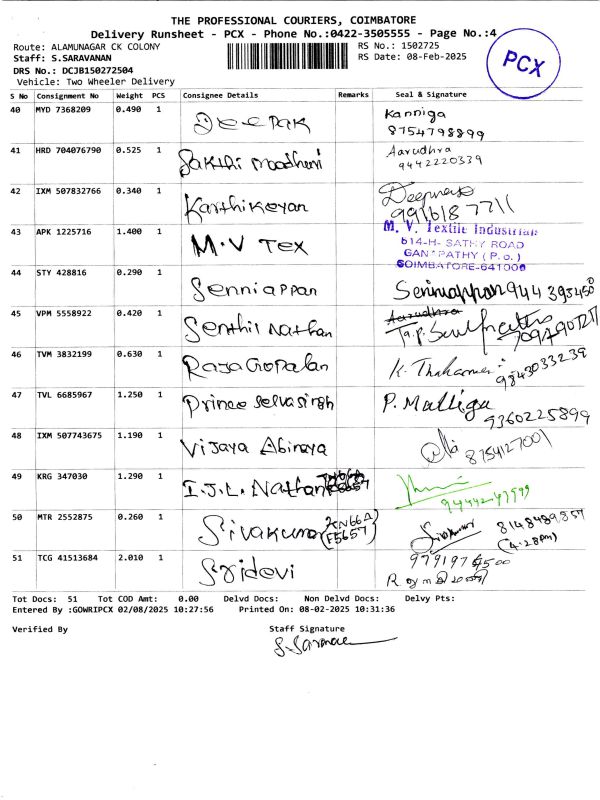 THE PROFESSIONAL COURIERS, COIMBATORE
Delivery Runsheet - PCX - Phone No.:0422-3505555 - Page No.:4
Route: ALAMUNAGAR CK COLONY
RS No.: 1502725
Staff: S.SARAVANAN
RS Date: 08-Feb-2025
DRS No.: DCJB150272504
Vehicle: Two Wheeler Delivery
PCX
S No Consignment No Weight PCS Consignee Details Remarks Seal & Signature
40 MYD 7368209 0.490 1 Deepak Kanniga
8754798899
41 HRD 704076790 0.525 1 Sakthi Aarudhra
9442220339
42 IXM 507832766 0.340 1 Karthikeyan
43 APK 1225716 1.400 1 M.V TEX M. V. Textile Industries
614-H- SATHY ROAD
GANAPATHY (P.o.)
COIMBATORE-641006
44 STY 428816 0.290 1 Senniappan Senniappan
45 VPM 5558922 0.420 1 Senthil Nathan
46 TVM 3832199 0.630 1 RajaGopalan
9843033239
47 TVL 6685967 1.250 1 Prince Selvasingh P. Malliga
9360225899
48 IXM 507743675 1.190 1 Vijaya Abinaya
8754127001
49 KRG 347030 1.290 1 I.J.L. Nathan
50 MTR 2552875 0.260 1 Sivakumar
(4.28pm)
51 TCG 41513684 2.010 1 Sridevi
Tot Docs: 51 Tot COD Amt: 0.00 Delvd Docs: Non Delvd Docs: Delvy Pts:
Entered By :GOWRIPCX 02/08/2025 10:27:56 Printed On: 08-02-2025 10:31:36
Verified By Staff Signature